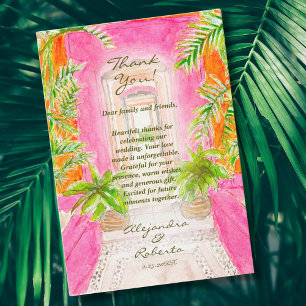 Thank
You!
Dear family and friends,
Heartfelt thanks for
celebrating our
wedding. Your love
made it unforgettable.
Grateful for your
presence, warm wishes
and generous gift.
Excited for future
moments together.
Alejandra
&
Roberto